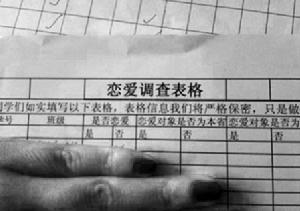 恋爱调查表格
同学们如实填写以下表格，表格信息我们将严格保密，只是做
班级 是否恋爱 恋爱对象是否为本省 恋爱对象是否为
是 否 是 否 是